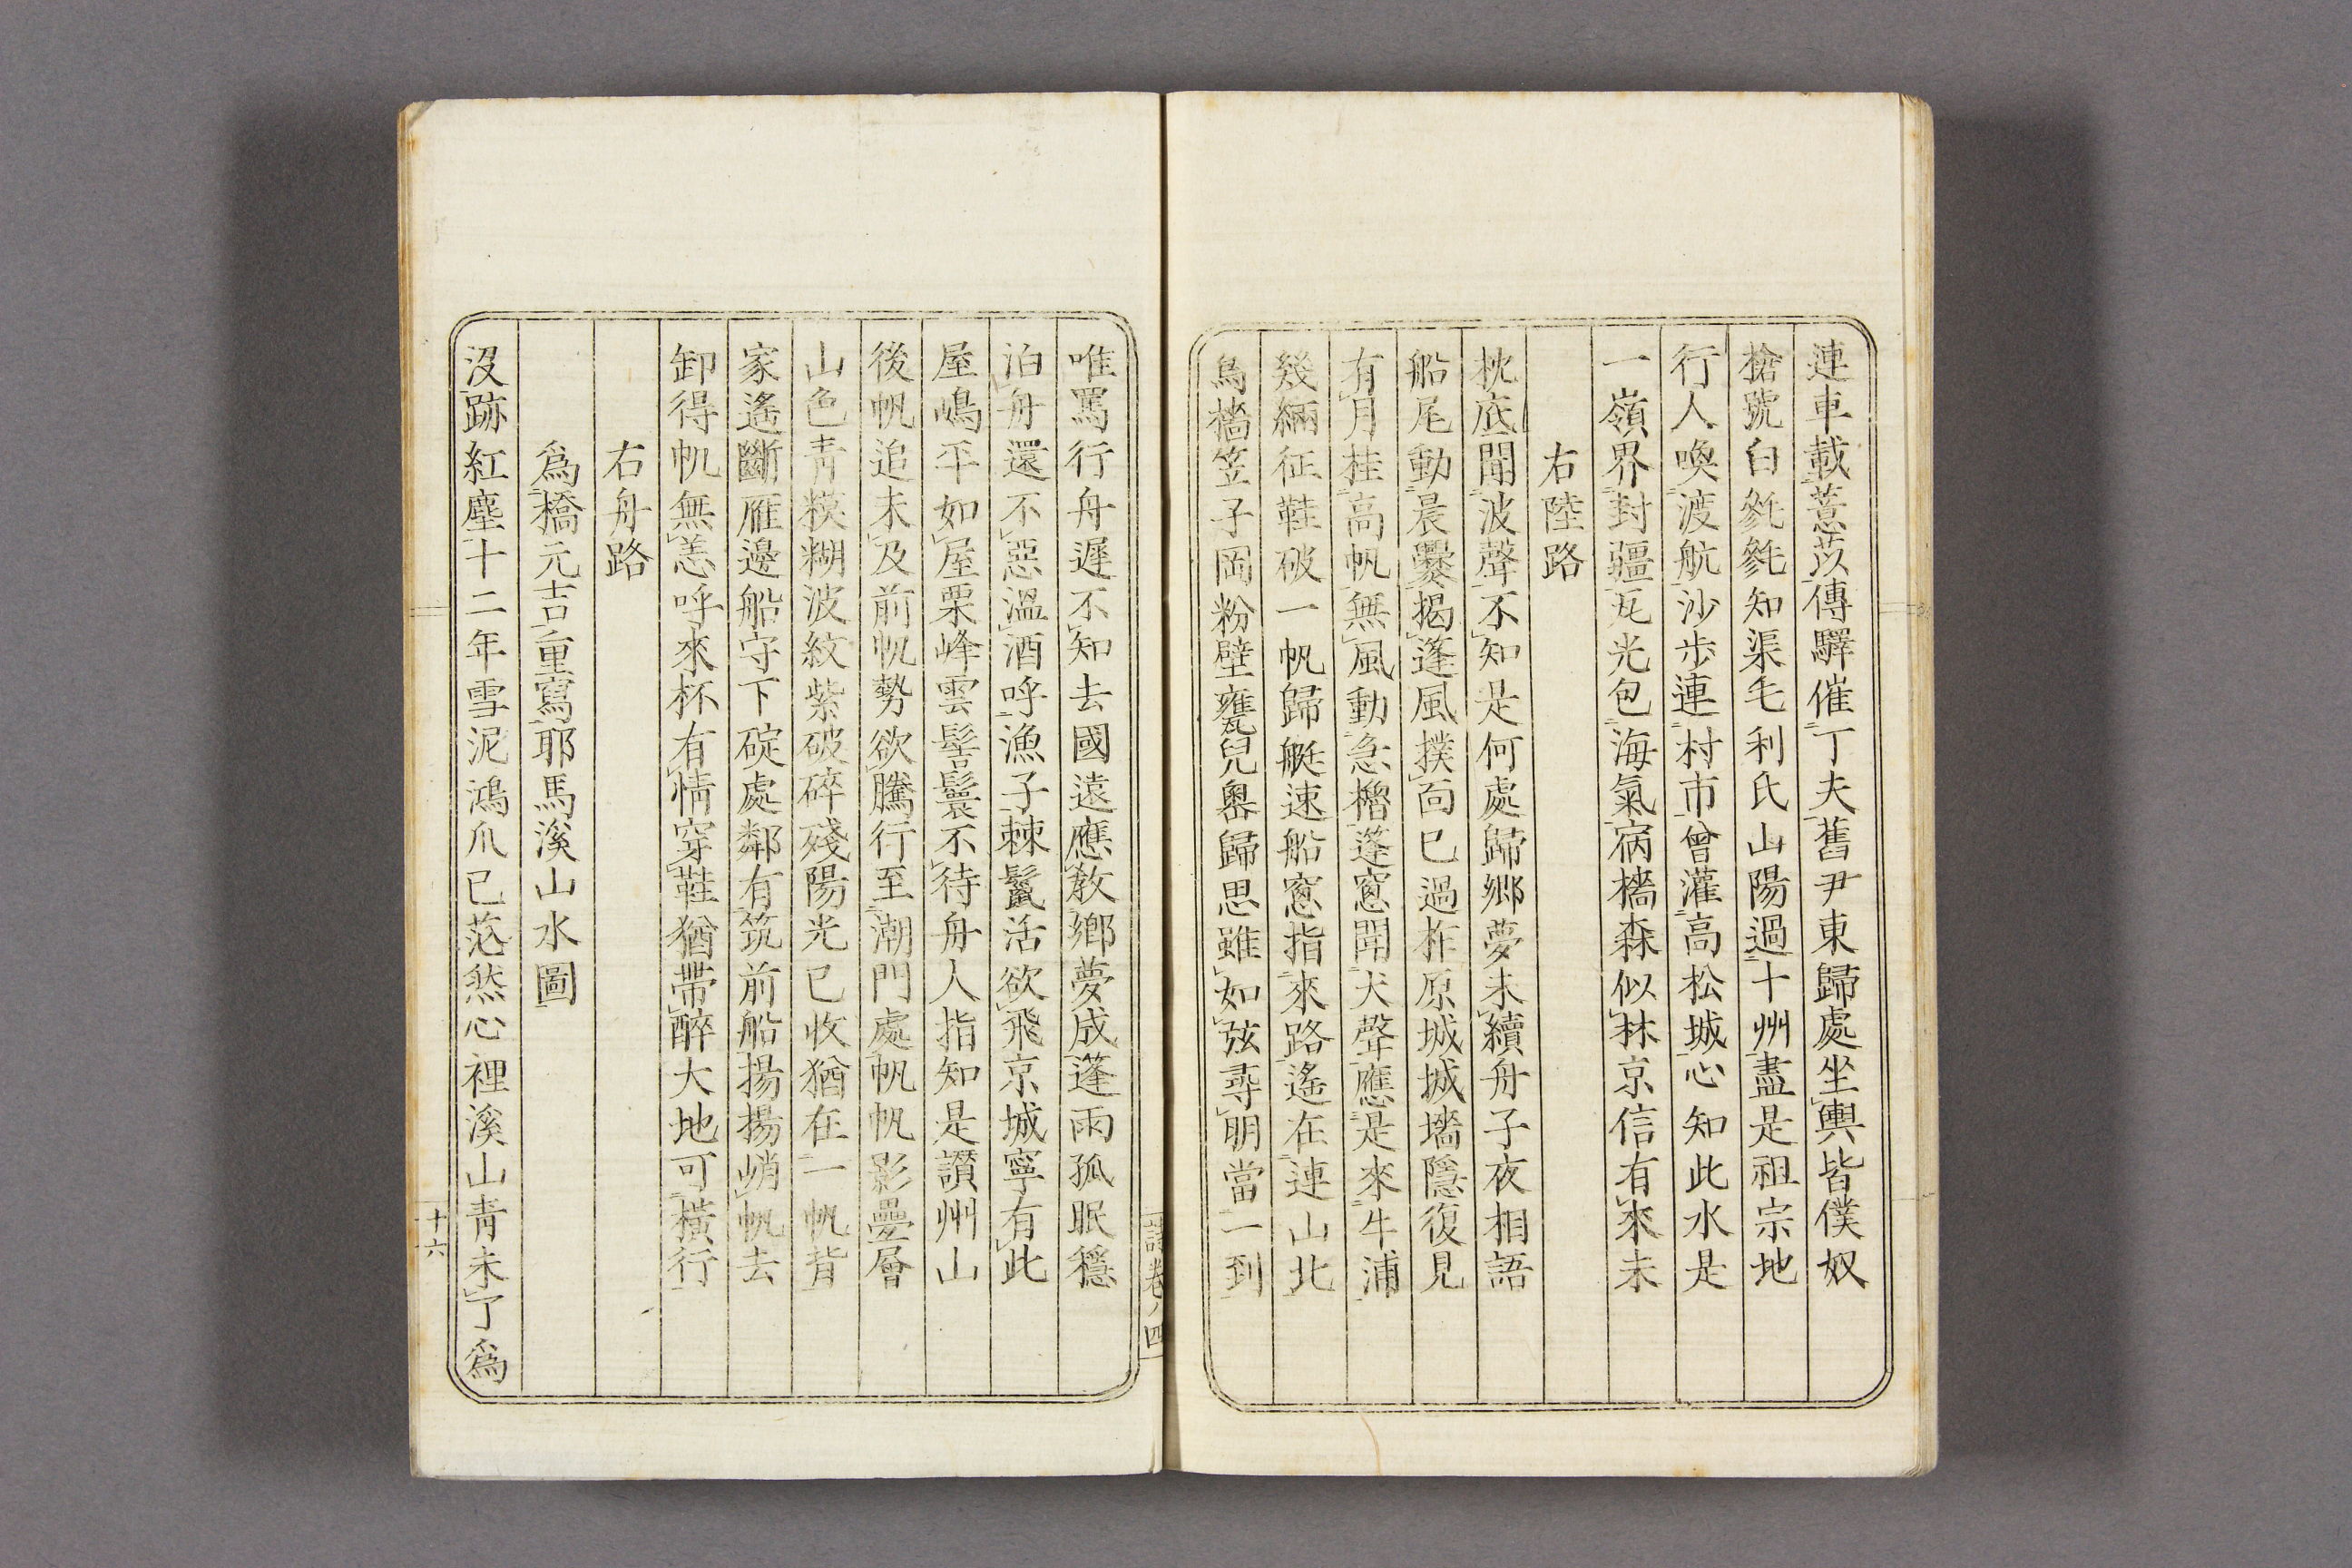 連車載薏苡傳驛催丁夫舊尹東歸處坐輿皆僕奴
槍號白毿毿知渠毛利氏山陽過十州盡是祖宗地
行人喚渡航沙步連村市曾灌高松城心知此水是
一嶺界封疆瓦光包海氣病檣森似林京信有來未
右陸路
枕底聞波聲不知是何處歸鄉夢未續舟子夜相語
船尾動晨爨揭蓬風撲面已過柞原城城墻隱復見
有月桂高帆無風動急櫓蓬窓聞犬聲應是來牛浦
幾緉征鞋破一帆歸艇速船窓指來路遙在連山北
烏檣笠子岡粉壁甕兒嶴歸思雖如弦尋明當一到
唯罵行舟遲不知去國遠應敎鄉夢成蓬雨孤眠穩
泊舟還不惡溫酒呼漁子棘鬣活欲飛京城寧有此
屋嶋平如屋栗峰雲髻鬟不待舟人指知是讚州山
後帆追未及前帆勢欲騰行至潮門處帆帆影疊層
山色青糢糊波紋紫破碎殘陽光已收猶在一帆背
家遙斷雁邊船守下碇處鄰有筑前船揚揚峭帆去
卸得帆無恙呼來杯有情穿鞋猶帶醉大地可橫行
右舟路
爲橋元吉重寫耶馬溪山水圖
沒跡紅塵十二年雪泥鴻爪已茫然心裡溪山青未了爲
詩卷ノ四
十六